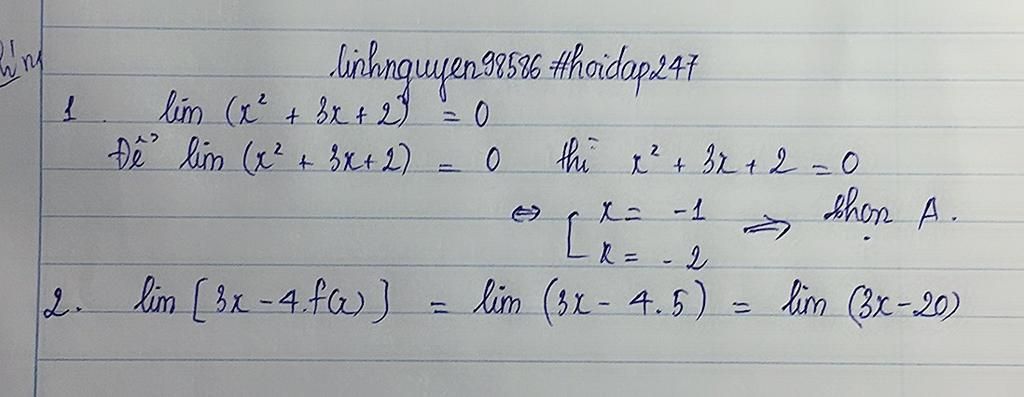 linhnguyen98586 #hoidap247
1. lim (x² + 3x + 2) = 0
Để lim (x² + 3x + 2) = 0 thì x² + 3x + 2 = 0
⇔ [ x = -1 ⇒ chọn A.
x = -2
2. lim [3x - 4.f(x)] = lim (3x - 4.5) = lim (3x - 20)